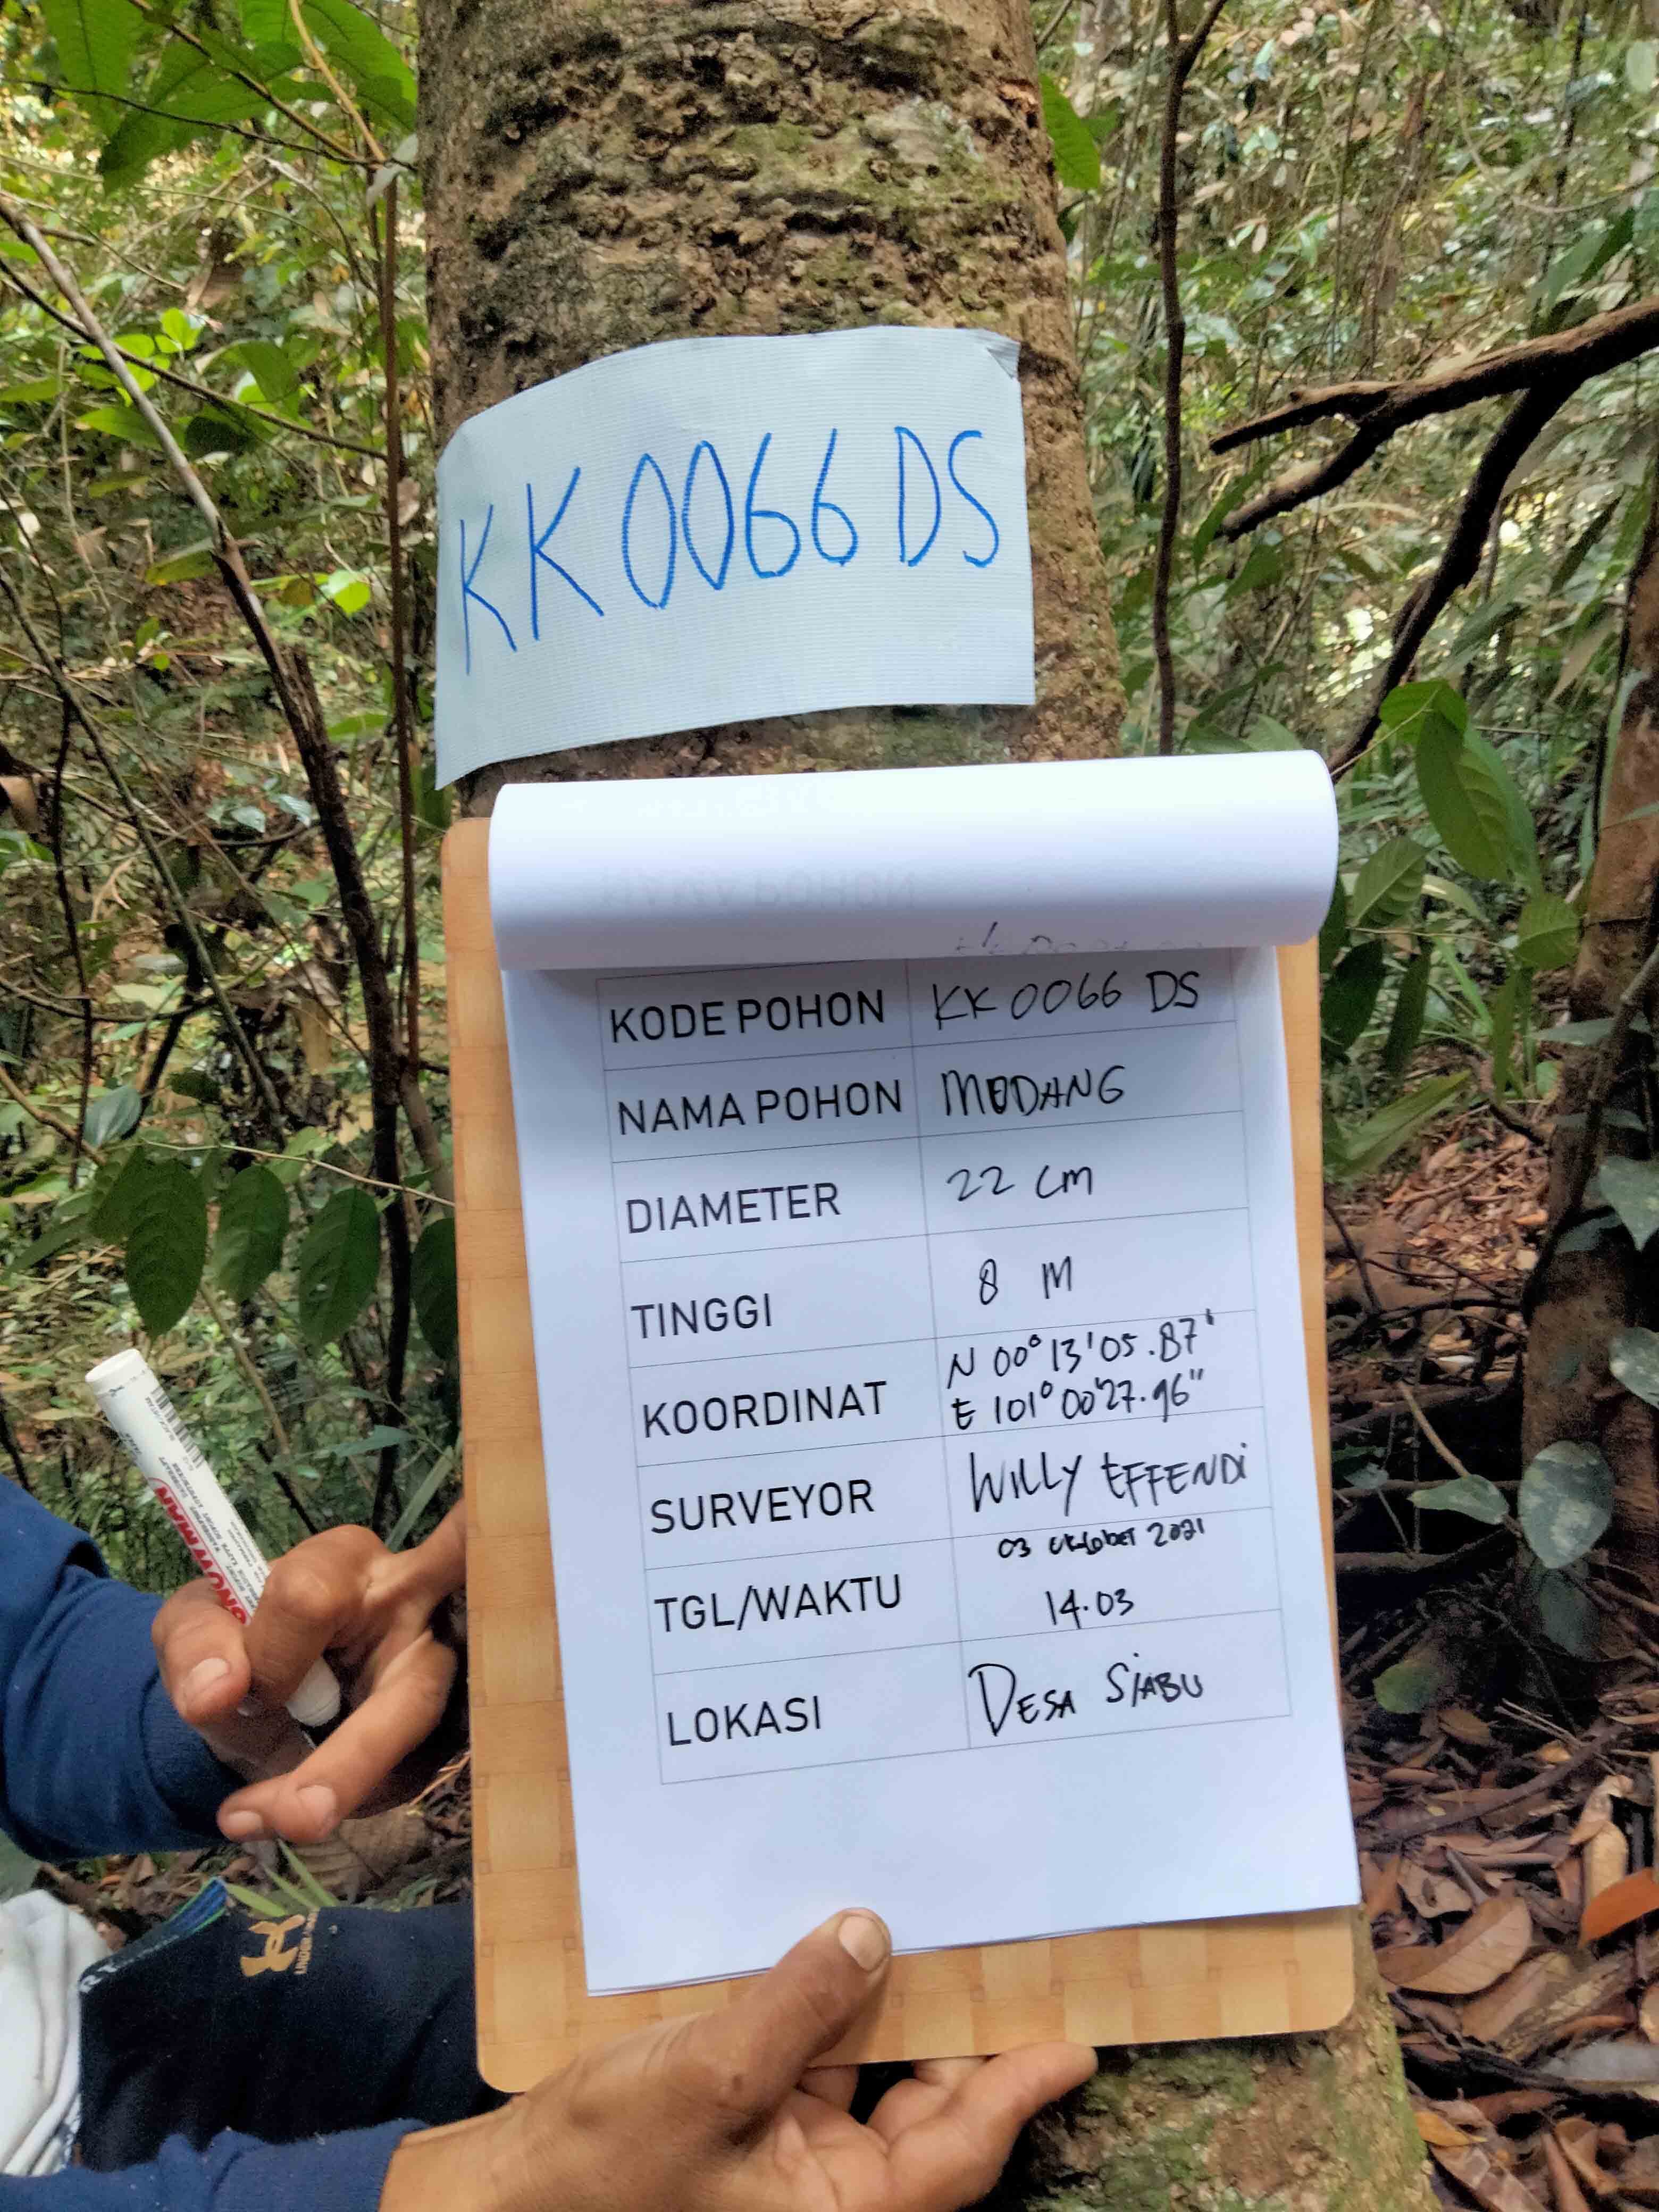 KK0066 DS
KODE POHON KK 0066 DS
NAMA POHON MODANG
DIAMETER 22 cm
TINGGI 8 M
KOORDINAT N 00° 13' 05.87'
E 101° 00' 27.96"
SURVEYOR WILLY EFFENDi
TGL/WAKTU 03 Oktober 2021
14.03
LOKASI DESA SiABU
SNOWMAN
UNDER